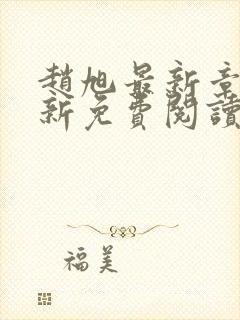 趙旭最新章
新免費閱讀
福美